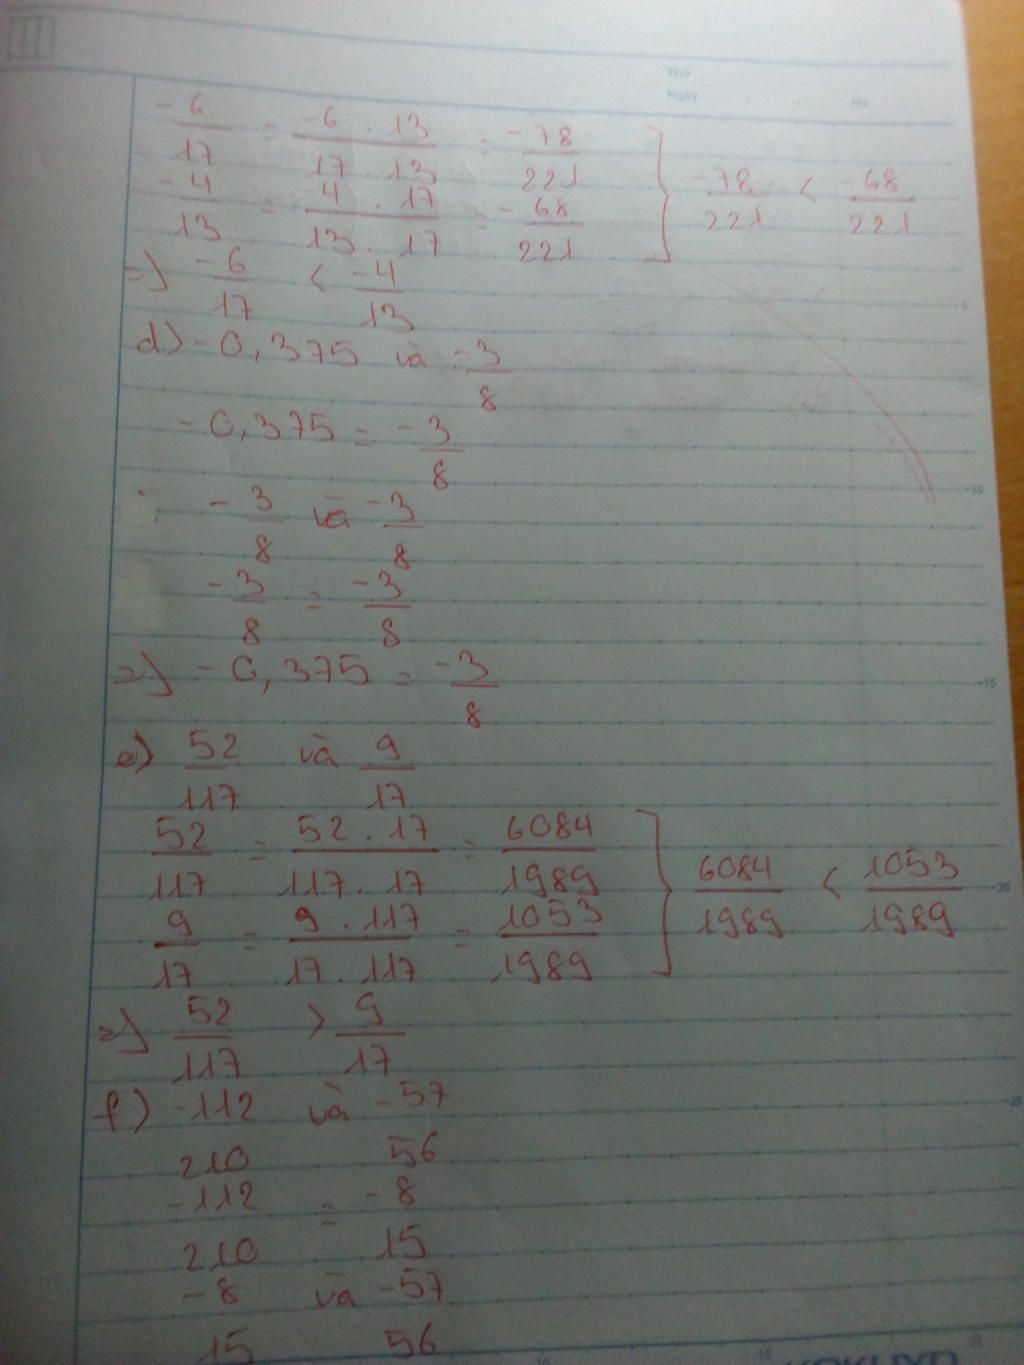 Thứ
Ngày No
-6/17 = -6 . 13/17 . 13 = -78/221
-4/13 = -4 . 17/13 . 17 = -68/221 } -78/221 < -68/221
=) -6/17 < -4/13
d) -0,375 và -3/8
-0,375 = -3/8
-3/8 và -3/8
-3/8 = -3/8
=) -0,375 = -3/8
e) 52/117 và 9/17
52/117 = 52 . 17/117 . 17 = 6084/1989
9/17 = 9 . 117/17 . 117 = 1053/1989 } 6084/1989 < 1053/1989
=) 52/117 > 9/17
f) -112/210 và -57/56
-112/210 = -8/15
-8/15 và -57/56